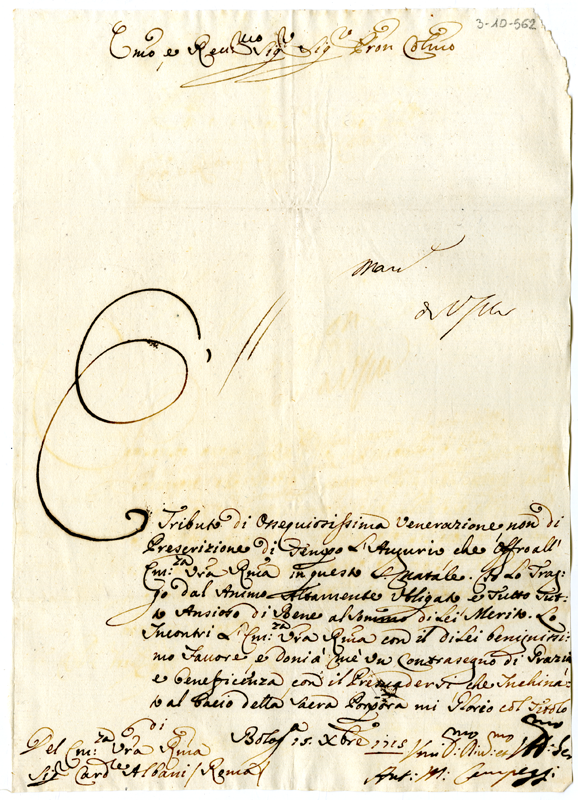 3-10-562
Emo, e Reumo Sigr Sigr Pron Colmo
È, Tributo di Ossequiosissima Venerazione non di
Prescrizione di Tempo L'Augurio che Offro all'
Em:za Vra Rma in questo S. Natale. Io Lo Trag=
go dal Animo altamente Obligato e Tutto Tut=
to Ansioso di Bene al Sommo di Lei Merito. Lo
Incontri L'Em:za Vra Rma con il di Lei benignissi=
mo Favore e donia me un Contrasegno di Grazia
e beneficenza con il Permadersi che Inchina=
to al bacio della Sacra Porpora mi Glorio col Titolo
di
Del Em:za Vra Rma Bolog 15. Xbre 1715
Sig Cardle Albani / Roma /
Ant: M: Campeggi